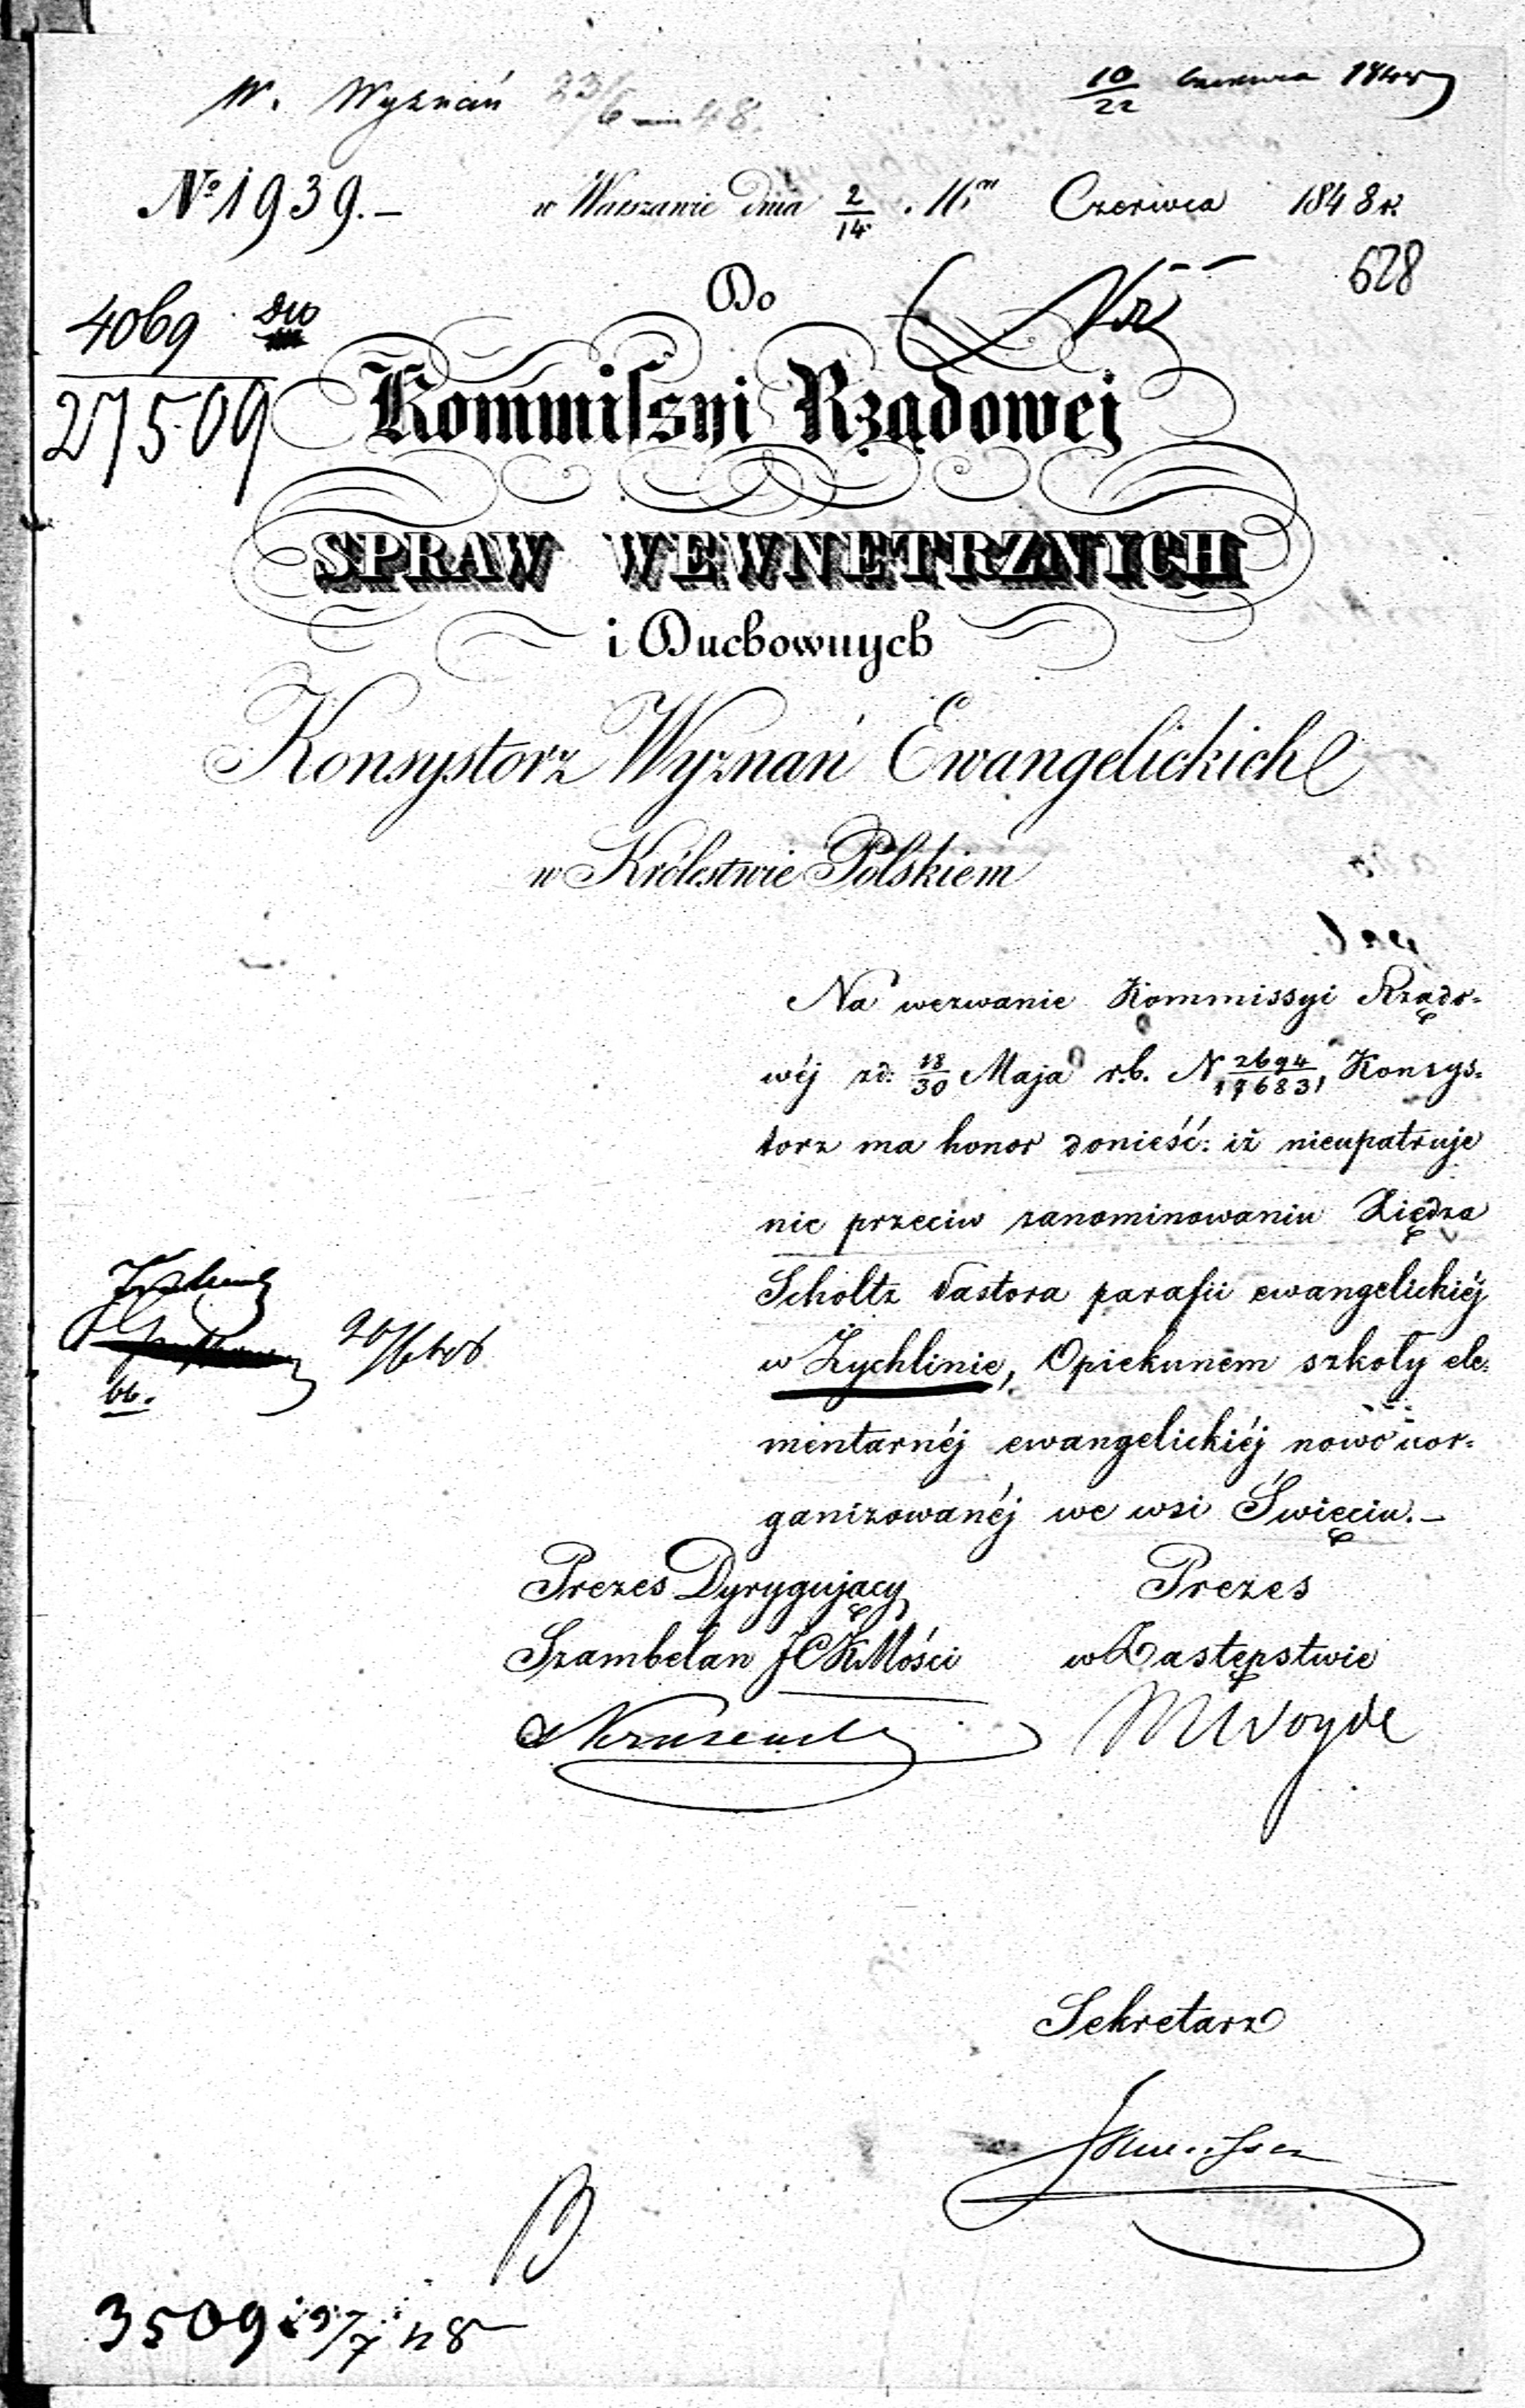 W. Wyznań 23/6 48.
10/22 Czerwca 1848
№ 1939.— w Warszawie dnia 2/14 Czerwca 1848 r.
628
4069
27509
Do
Kommissyi Rządowej
SPRAW WEWNĘTRZNYCH
i Duchownych
Konsystorz Wyznań Ewangelickich
w Królestwie Polskiem
Na wezwanie Kommissyi Rządo-
wéj zd: 18/30 Maja r.b. N 2694/17683, Konsys-
torz ma honor donieść: iż nieupatruje
nic przeciw zanominowaniu Xiędza
Scholtz Pastora parafii ewangelickiéj
w Żychlinie, Opiekunem szkoły ele-
mentarnéj ewangelickiéj nowo uor-
ganizowanéj we wsi Święciu.—
Prezes Dyrygujący Prezes
Szambelan JCKMości w Zastępstwie
Woyde
20/6
Sekretarz
3509 48